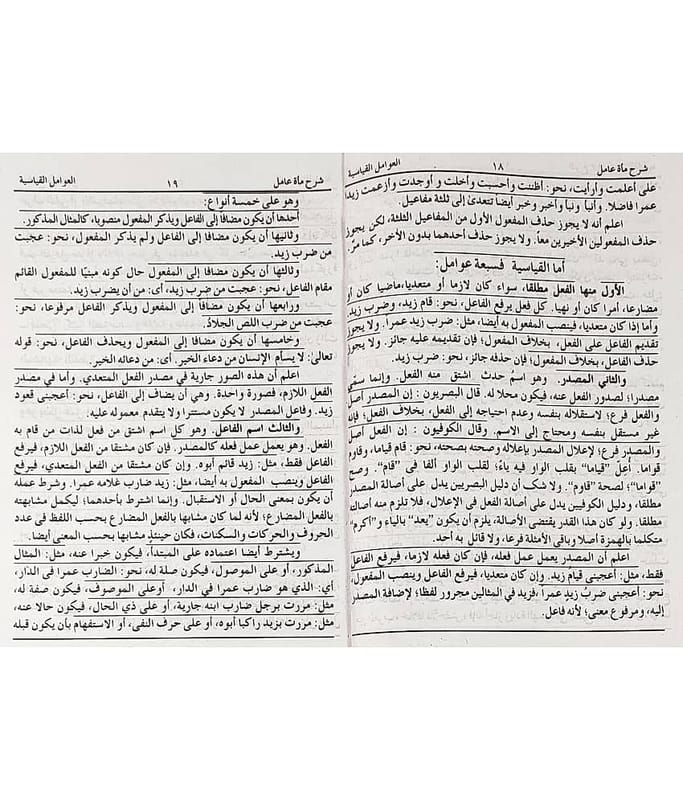 شرح مأة عامل ١٨ العوامل القياسية
على أعلمت وأرأيت، نحو: أظننت وأحسبت وأخلت و أوجدت وأزعمت زيدا
عمرا فاضلا. وأنبأ ونبأ وأخبر وخبر أيضا تتعدى إلى ثلثة مفاعيل.
اعلم أنه لا يجوز حذف المفعول الأول من المفاعيل الثلثة، لكن يجوز
حذف المفعولين الأخيرين معاً. ولا يجوز حذف أحدهما بدون الآخر، كما مرّ.
أما القياسية فسبعة عوامل:
الأول منها الفعل مطلقا، سواء كان لازما أو متعديا، ماضيا كان أو
مضارعا، أمرا كان أو نهيا. كل فعل يرفع الفاعل، نحو: قام زيد، وضرب زيد.
وأما إذا كان متعديا، فينصب المفعول به أيضا، مثل: ضرب زيد عمرا. ولا يجوز
تقديم الفاعل على الفعل، بخلاف المفعول؛ فإن تقديمه عليه جائز. ولا يجوز
حذف الفاعل، بخلاف المفعول؛ فإن حذفه جائز، نحو: ضرب زيد.
والثاني المصدر. وهو اسمُ حدث اشتق منه الفعل. وإنما سمّي
مصدرا؛ لصدور الفعل عنه، فيكون محلا له. قال البصريون : إن المصدر أصل
والفعل فرع؛ لاستقلاله بنفسه وعدم احتياجه إلى الفعل، بخلاف الفعل؛ فإنه
غير مستقل بنفسه ومحتاج إلى الاسم. وقال الكوفيون : إن الفعل أصل
والمصدر فرع؛ لإعلال المصدر بإعلاله وصحته بصحته، نحو: قام قياما، وقاوم
قواما. أعلّ "قياما" بقلب الواو فيه ياءً؛ لقلب الواو ألفا فى "قام". وصح
"قواما"؛ لصحة "قاوم". ولا شك أن دليل البصريين يدل على أصالة المصدر
مطلقا، ودليل الكوفيين يدل على أصالة الفعل فى الإعلال، فلا تلزم منه أصالته
مطلقا. ولو كان هذا القدر يقتضى الأصالة، يلزم أن يكون "يعد" بالياء و "أكرم"
متكلما بالهمزة أصلا وباقى الأمثلة فرعا، ولا قائل به أحد.
اعلم أن المصدر يعمل عمل فعله، فإن كان فعله لازما، فيرفع الفاعل
فقط، مثل: أعجبني قيام زيد. وإن كان متعديا، فيرفع الفاعل وينصب المفعول،
نحو: أعجبنى ضربُ زيدٍ عمراً، فزيد في المثالين مجرور لفظا؛ لإضافة المصدر
إليه، ومرفوع معنى؛ لأنه فاعل.
شرح مأة عامل ١٩ العوامل القياسية
وهو على خمسة أنواع:
أحدها أن يكون مضافا إلى الفاعل ويذكر المفعول منصوبا، كالمثال المذكور.
وثانيها أن يكون مضافا إلى الفاعل ولم يذكر المفعول، نحو: عجبت
من ضرب زيد.
وثالثها أن يكون مضافا إلى المفعول حال كونه مبنيًا للمفعول القائم
مقام الفاعل، نحو: عجبت من ضرب زيد، أى: من أن يضرب زيد.
ورابعها أن يكون مضافا إلى المفعول ويذكر الفاعل مرفوعا، نحو:
عجبت من ضرب اللص الجلادُ.
وخامسها أن يكون مضافا إلى المفعول ويحذف الفاعل، نحو: قوله
تعالىٰ: لا يسأم الإنسان من دعاء الخير. أى: من دعائه الخير.
اعلم أن هذه الصور جارية فى مصدر الفعل المتعدي. وأما في مصدر
الفعل اللازم، فصورة واحدة. وهي أن يضاف إلى الفاعل، نحو: أعجبنى قعود
زيد. وفاعل المصدر لا يكون مستترا ولا يتقدم معموله عليه.
والثالث اسم الفاعل. وهو كل اسم اشتق من فعل لذات من قام به
الفعل. وهو يعمل عمل فعله كالمصدر. فإن كان مشتقا من الفعل اللازم، فيرفع
الفاعل فقط، مثل: زيد قائم أبوه. وإن كان مشتقا من الفعل المتعدي، فيرفع
الفاعل وينصب المفعول به أيضا، مثل: زيد ضارب غلامه عمرا. وشرط عمله
أن يكون بمعنى الحال أو الاستقبال. وإنما اشترط بأحدهما؛ ليكمل مشابهته
بالفعل المضارع؛ لأنه لما كان مشابها بالفعل المضارع بحسب اللفظ فى عدد
الحروف والحركات والسكنات، فكان حينئذٍ مشابها بحسب المعنى أيضا.
ويشترط أيضا اعتماده على المبتدأ، فيكون خبرا عنه، مثل: المثال
المذكور، أو على الموصول، فيكون صلة له، نحو: الضارب عمرا فى الدار،
أي: الذي هو ضارب عمرا في الدار، أوعلى الموصوف، فيكون صفة له،
مثل: مررت برجل ضارب ابنه جارية، أو على ذي الحال، فيكون حالا عنه،
مثل: مررت بزيد راكبا أبوه، أو على حرف النفى، أو الاستفهام بأن يكون قبله